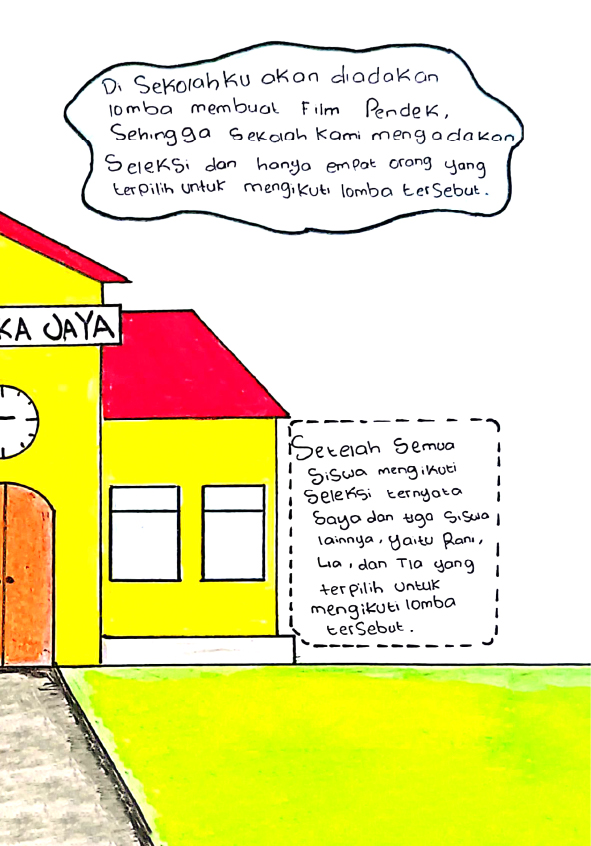 Di Sekolahku akan diadakan
lomba membuat Film Pendek,
Sehingga Sekolah Kami mengadakan
Seleksi dan hanya empat orang yang
terpilih untuk mengikuti lomba terSebut.
KA JAYA
Setelah Semua
Siswa mengikuti
Seleksi ternyata
Saya dan tiga Siswa
lainnya, yaitu Rani,
Lia, dan Tia yang
terpilih untuk
mengikuti lomba
terSebut.